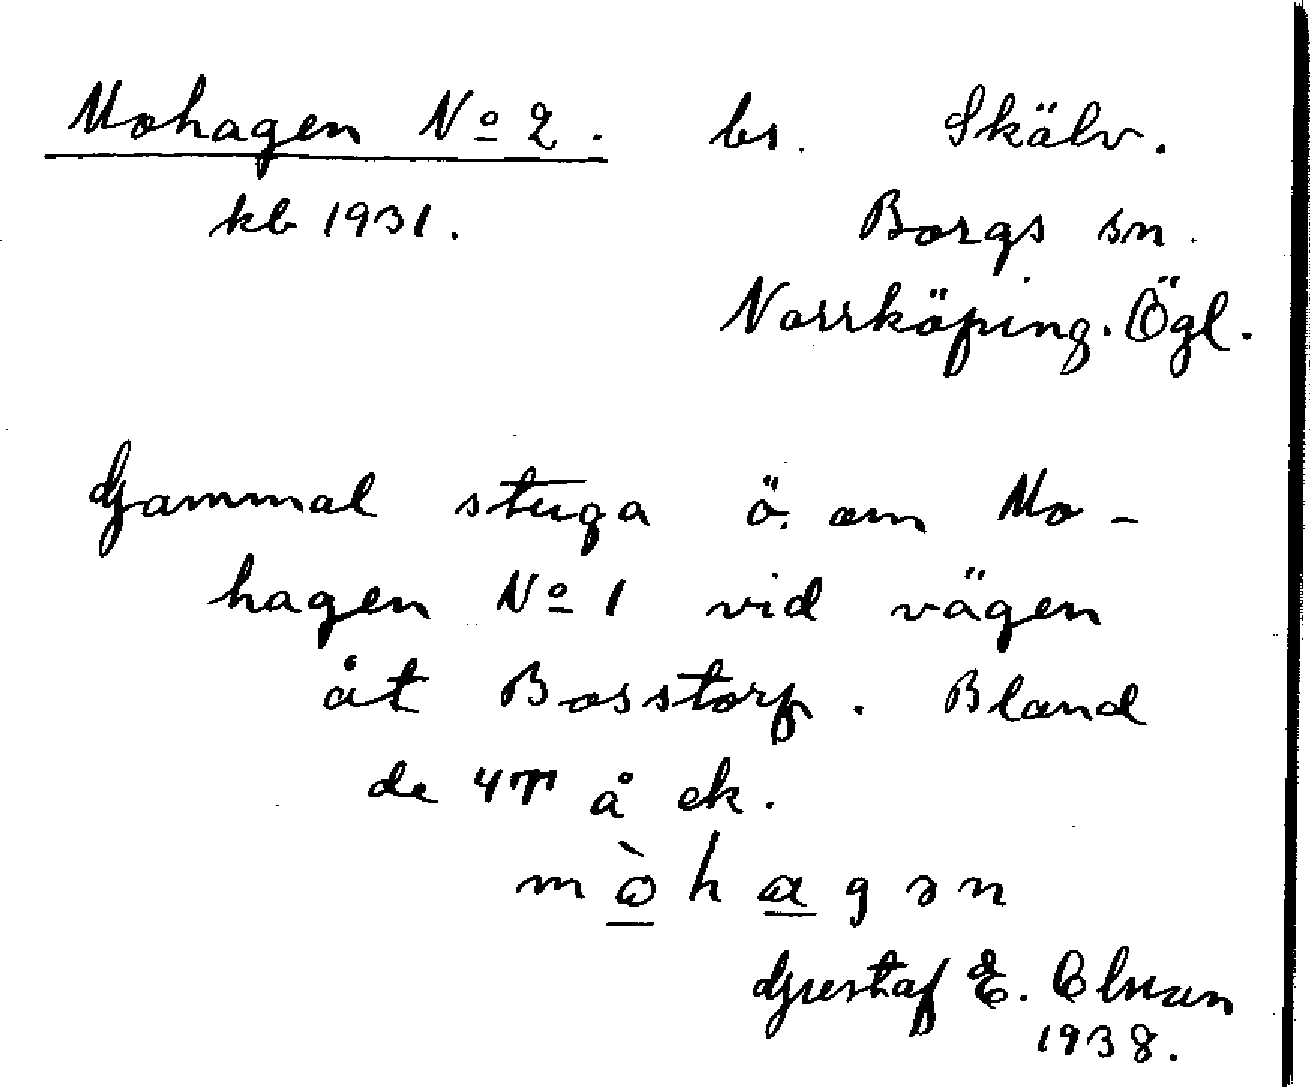 Mohagen No 2. bs. Skälv.
kb 1931. Borgs sn.
Norrköping. Ögl.
Gammal stuga ö. om Mo-
hagen No 1 vid vägen
åt Bosstorp. Bland
de 4T å ek.
mòhagən
Gustaf E. Olsson
1938.